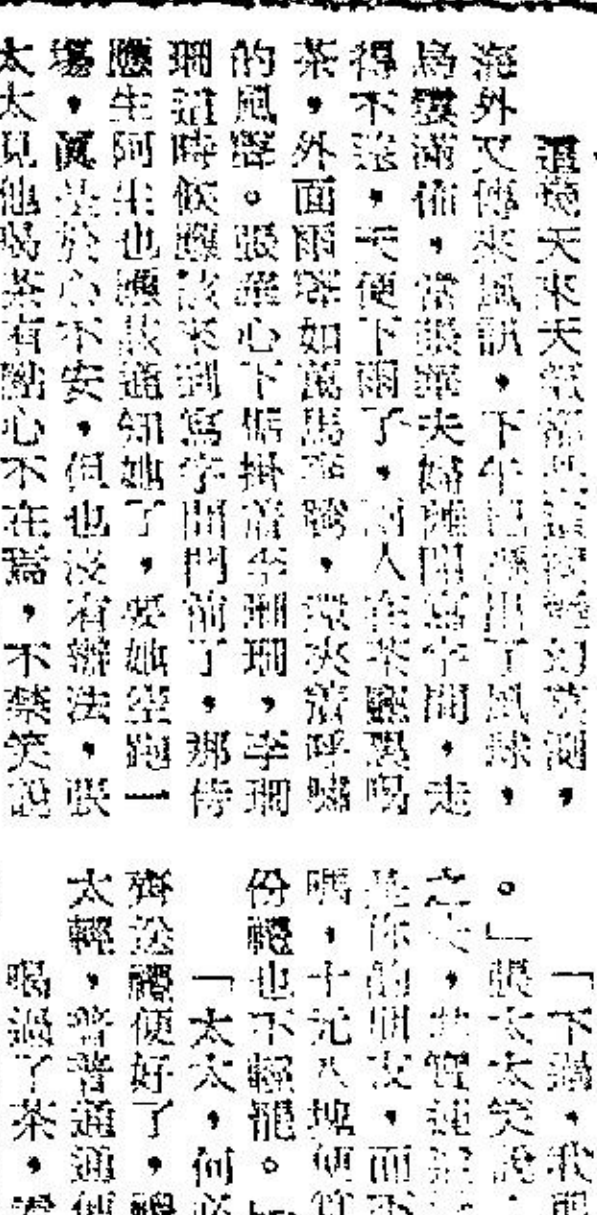 這幾天來天氣都是這樣變幻莫測，
海外又傳來風訊，下午已經出了風球，
烏雲滿佈，當張華夫婦離開寫字間，走
得不遠，天便下雨了，兩人在茶廳裏喝
茶，外面雨聲如萬馬奔騰，還夾着呼嘯
的風聲。張華心下惦掛着李珊珊，李珊
珊這時候應該來到寫字間門前了，那侍
應生阿牛也應該通知她了，要她空跑一
場，真是於心不安，但也沒有辦法，張
太太見他喝茶有點心不在焉，不禁笑說
「下過，我
。」張太太笑說：
之
是你的朋友，而不
嗎，十元八塊便算
份禮也不輕呢。」
「太太，何必
齊 禮便好了，禮
太輕，普普通通便
喝過了茶，